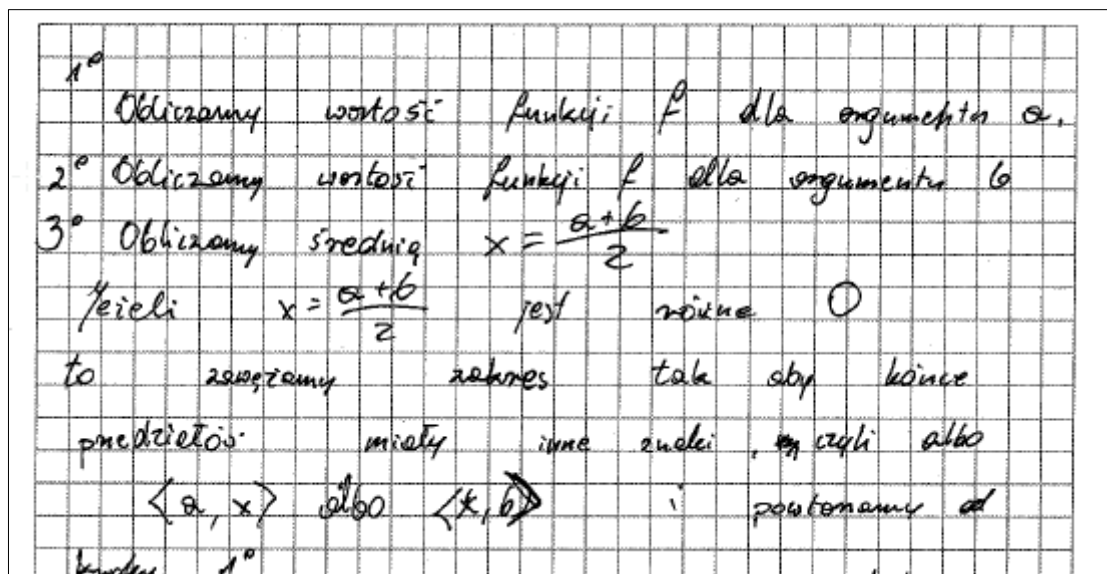 1°
Obliczamy wartość funkcji f dla argumentu a.
2° Obliczamy wartość funkcji f dla argumentu b
3° Obliczamy średnią x = \frac{a+b}{2}
Jeżeli x = \frac{a+b}{2} jest równe 0
to zawężamy zakres tak aby końce
przedziałów miały inne znaki, czyli albo
<a, x> albo <x, b> i powtarzamy od
kroku 1°